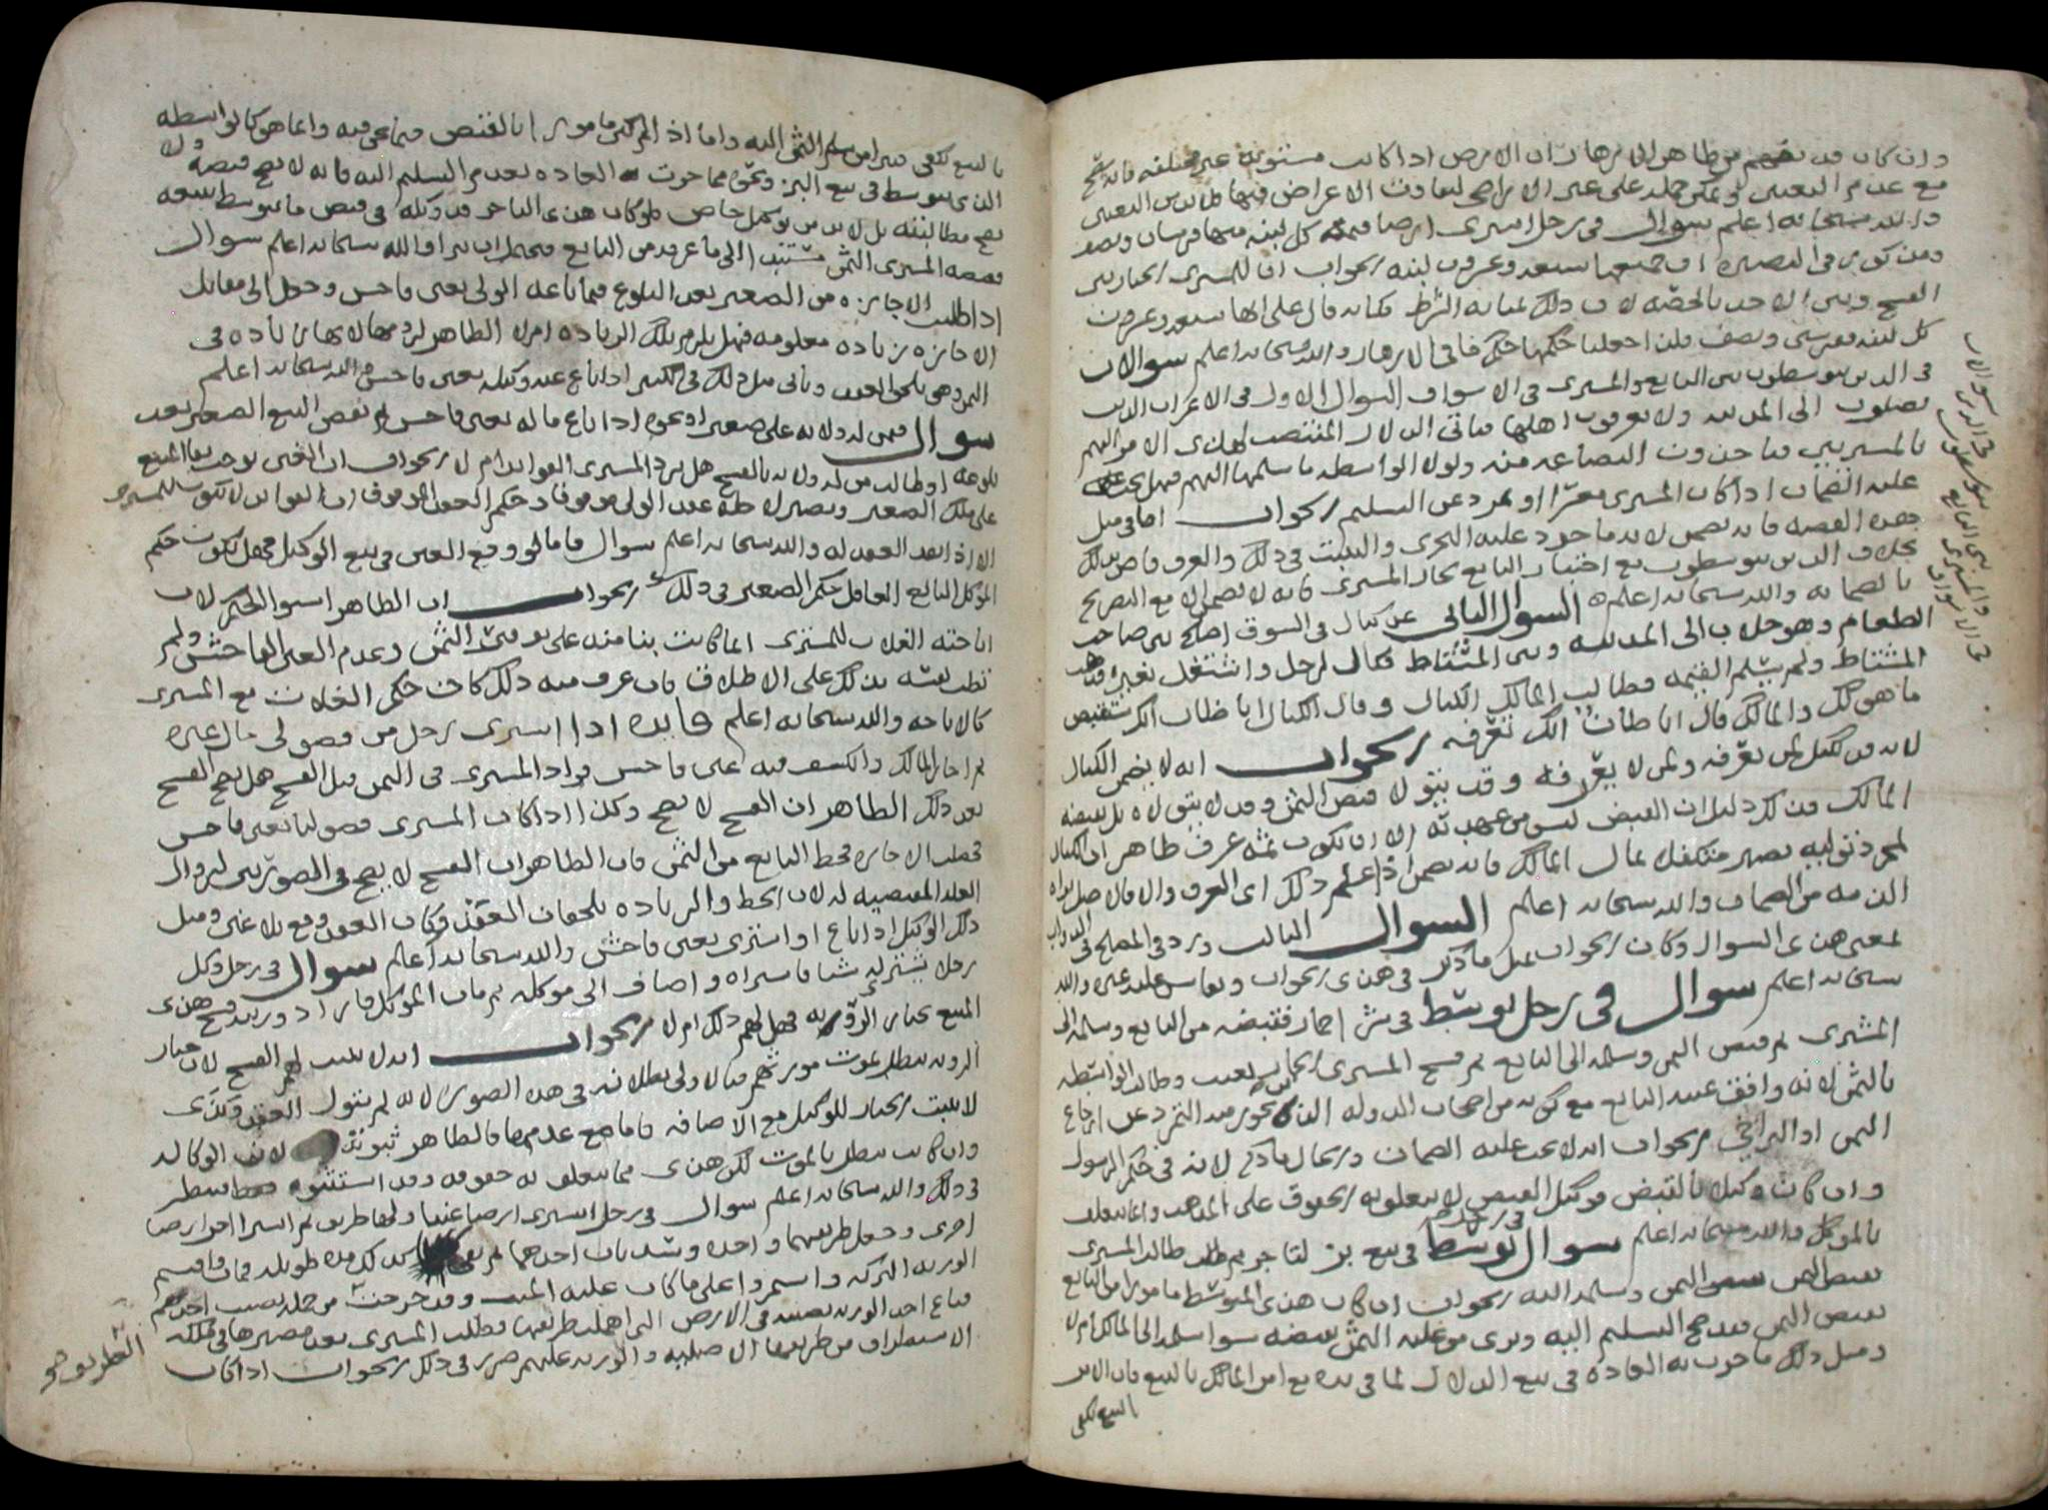 وان كان قد يفهم من ظاهر الازهار ان الارض اذا كانت مستوية غير مختلفة فانه يصح
مع عدم التعيين ولم يمكن حمله على غير الاراضي لتفاوت الاعراض فيها فلا بد من التعيين
والله سبحانه اعلم سوال في رجل اشترى ارضا قيمة كل لبنة منها قرشان ونصف
ومذكور في البصيرة ان جميعها سبعه وعشرون لبنه الجواب ان للمشترى الخيار بين
الفسخ وبين الاخذ بالحصه لان ذلك بمثابه الشرط فكانه قال على انها سبعه وعشرون
كل لبنه بقرشين ونصف فلذا جعلنا حكمها حكم ما في الازهار والله سبحانه اعلم سوالان
في الذين يتوسطون بين البايع والمشترى في الاسواق السوال الاول في الاعراب الذين
يصلون الى المدينه ولا يعرفون اهلها فياتي الدلال المنتصب لهذا الامر اليهم
بالمشتريين فياخذون البضاعه منه ولولا الواسطه ما سلمها اليهم فهل يجب
عليه الضمان اذا كان المشترى معسرا او تمرد عن التسليم الجواب اما في مثل
هذه القصه فانه يضمن لانه ماخوذ عليه التحرى والتثبت في ذلك والعرف قاض بذلك
بخلاف الذين يتوسطون مع اختبار البايع بحال المشترى فانه لا يضمن الا مع التصريح
بالضمانه والله سبحانه اعلم السوال الثاني عن كيال في السوق اصلح بين صاحب
الطعام وهو جلاب الى المدينه وبين المشتاط فكال لرجل واشتغل بغيره فذهب
المشتاط ولم يسلم القيمه فطالب المالك الكيال وقال الكيال انا ظان انك ستقبض
ما هو لك والمالك قال انا ظان انك تعرفه الجواب انه لا يضمن الكيال
لانه قد يكيل لمن يعرفه ولمن لا يعرفه وقد يتولا قبض الثمن وقد لا يتولاه بل يقبضه
المالك فذلك دليل ان القبض ليس من عهدته الا ان يكون ثمه عرف ظاهر ان الكيال
بمجرد توليه يصير متكفلا بمال المالك فانه يضمن اذا علم ذلك اى العرف والا فالاصل براه
الذمه من الضمان والله سبحانه اعلم السوال الثالث ورد في المصلح في الدواب
بمعنى هذا السوال وكان الجواب بمثل ما ذكر في هذا الجواب ويقاس عليه غيره والله
سبحانه اعلم سوال في رجل توسط في شرا حمار فقبضه من البايع وسلمه الى
المشترى ثم قبض الثمن وسلمه الى البايع ثم فسخ المشترى الحمار بعيب وطالب الواسطه
بالثمن لانه وافق عند البايع مع كونه من اصحاب الدوله الذى يجوز منه التمرد عن ارجاع
الثمن او التراخي الجواب انه لا يجب عليه الضمان والحال ما ذكر لانه في حكم الرسول
وان كان وكيلا بالقبض فوكيل القبض لا يتعلق به الحقوق على المذهب وانما يتعلق
بالموكل والله سبحانه اعلم سوال في رجل توسط في بيع بز لتاجر ثم طالب المشترى
بقبض الثمن وسلمه اليه الجواب ان كان هذا المتوسط مامورا من البايع
بقبض الثمن فقد صح التسليم اليه وبرى من عليه الثمن بقبضه سوا سلمه الى المالك ام لا
ومثل ذلك ما جرت به العاده في بيع الدلال لما في يده مع امر المالك بالبيع فان الامر
بالبيع يكفي
سوالات في الذين يتوسطون بين البايع والمشترى في الاسواق
بالبيع يكفي عن امر تسليم الثمن اليه واما اذا لم يكن مامورا بالقبض فيما عى فيه وانما هو كالواسطه
الذى يتوسط في بيع البز ونحوه مما جرت العاده بعدم التسليم اليه فانه لا يصح قبضه ولا
يصح مطالبته بل لا بد من توكيل خاص فلو كان هذا التاجر قد وكله في قبض ما يتوسط ببيعه
فقبضه المشترى الثمن مستندا الى ما عرفه من البايع فيحتمل ان يبرا والله سبحانه اعلم سوال
اذا طلب الاجازه من الصغير بعد البلوغ فيما باعه الولى بغبن فاحش وحصل الى مقابل
الاجازه زياده معلومه فهل يلزم تلك الزياده ام لا الظاهر لزومها لانها زياده في
الثمن وهي تلحق العقد وياتي مثل ذلك في الكبير اذا باع عنه وكيله بغبن فاحش والله سبحانه اعلم
سوال فيمن له ولايه على صغير او نحوه اذا باع ماله بغبن فاحش ثم نقض البيع الصغير بعد
بلوغه او طالب من له ولايه بالفسخ هل يرد المشترى الفوايد ام لا الجواب ان الغبن يوجب بقا المبيع
على ملك الصغير ويصير له عقد الولى موقوفا وحكم العقد الموقوف ان الفوايد لا تكون للمشترى
الا اذا نفذ العقد له والله سبحانه اعلم سوال فاما لو وقع الغبن في بيع الوكيل فهل يكون حكم
الموكل البايع العاقل حكم الصغير في ذلك الجواب ان الظاهر استوا الحكم لان
اباحته الغلات للمشترى انما كانت بنا منه على توفير الثمن وعدم الغبن الفاحش ولم
تطب نفسه بذلك على الاطلاق فان عرف منه ذلك كان حكم الغلات مع المشترى
كالاباحه والله سبحانه اعلم فايده اذا اشترى رجل من فضولى مال غيره
ثم اجاز المالك وانكشف فيه غبن فاحش فزاد المشترى في الثمن قبل الفسخ هل يصح الفسخ
بعد ذلك الظاهر ان الفسخ لا يصح وكذا اذا كان المشترى فضوليا بغبن فاحش
فحصلت الاجازه فحط البايع من الثمن فان الظاهر ان الفسخ لا يصح في الصورتين لزوال
العله المقتضيه له لان الحط والزياده يلحقان العقد فكان العقد وقع بلا غبن ومثل
ذلك الوكيل اذا باع او اشترى بغبن فاحش والله سبحانه اعلم سوال في رجل وكل
رجلا يشترى له شيا فاشراه واضاف الى موكله ثم مات الموكل فاراد ورثته فسخ هذا
المبيع بخيار الرويه فهل لهم ذلك ام لا الجواب انه لا يثبت لهم الفسخ لان خيار
الرويه يبطل بموت مورثهم فبالاولى بطلانه في هذه الصوره لانه لم يتول العقد وكذى
لا يثبت الخيار للوكيل مع الاضافه فاما مع عدمها فالظاهر ثبوته لان الوكاله
وان كانت تبطل بالموت لكن هذا مما يتعلق به حقوقه وقد استثنوه فينظر
في ذلك والله سبحانه اعلم سوال في رجل اشترى ارضا عنبا ولها طريق ثم اشترا اخرا ارضا
اخرى وجعل طريقهما واحده وسد باب احدهما ثم بقى كذلك مده طويله فمات واقتسم
الورثه التركه واستمروا على ما كان عليه الميت وقد خرجت من جمله نصيب احدهم
فباع احد الورثه نصيبه في الارض التي اهملت طريقها فطلب المشترى بعد مصيرها في ملكه
الاستطراق من طريقها الاصليه والورثه عليهم ضرر في ذلك الجواب اذا كان
الطريق هو